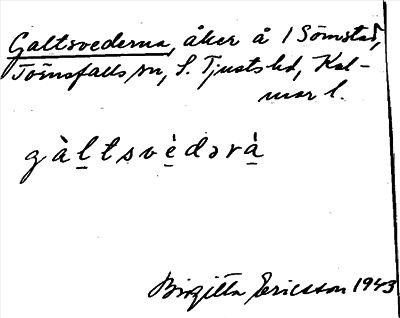 Galtsvederna, åker å 1 Sömstad,
Törnsfalls sn, S. Tjusts hd, Kal-
mar l.
gàltsvèdərà
Birgitta Ericsson 1943